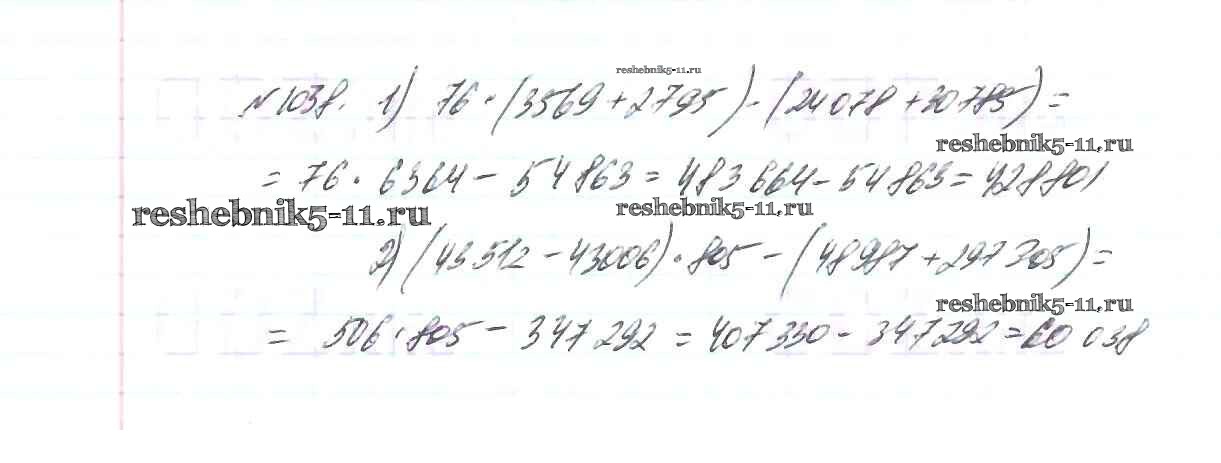 reshebnik5-11.ru
№1038. 1) 76·(3569+2795)-(24078+30785)=
reshebnik5-11.ru
= 76·6364-54863=483664-54863=428801
reshebnik5-11.ru reshebnik5-11.ru
2) (43512-43006)·805-(48987+297305)=
reshebnik5-11.ru
= 506·805-347292=407330-347292=60038